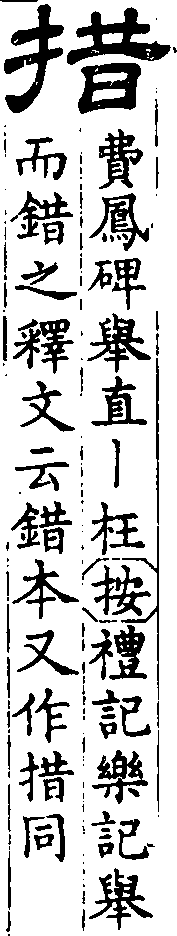 措
費鳳碑舉直丨枉按禮記樂記舉
而錯之釋文云錯本又作措同